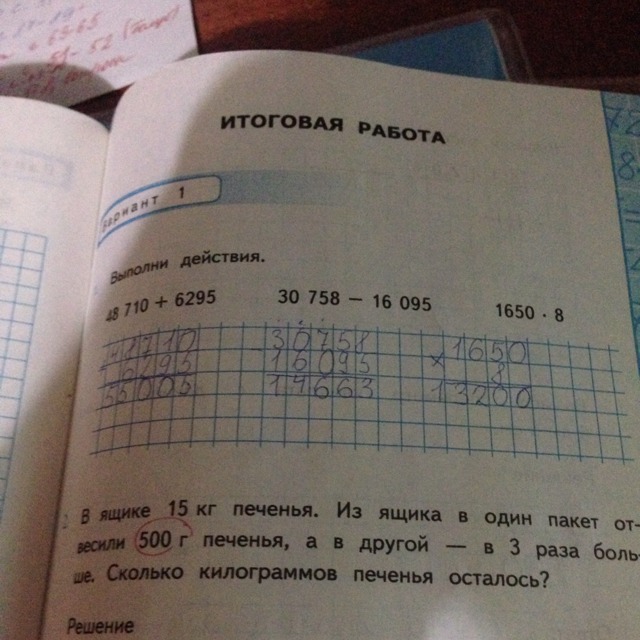 ИТОГОВАЯ РАБОТА
Вариант 1
Выполни действия.
48 710 + 6295 30 758 − 16 095 1650 · 8
48710 30758 1650
+ 6295 16095 × 8
55005 14663 13200
В ящике 15 кг печенья. Из ящика в один пакет от-
весили 500 г печенья, а в другой — в 3 раза боль-
ше. Сколько килограммов печенья осталось?
Решение